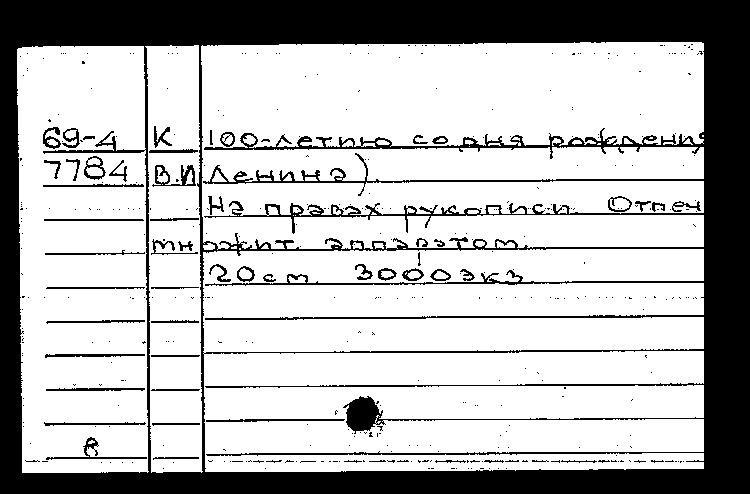 69-4 К 100-летию со дня рождения
7784 В.И. Ленина).
На правах рукописи. Отпеч
множит. аппаратом.
20 см. 3000 экз.
в